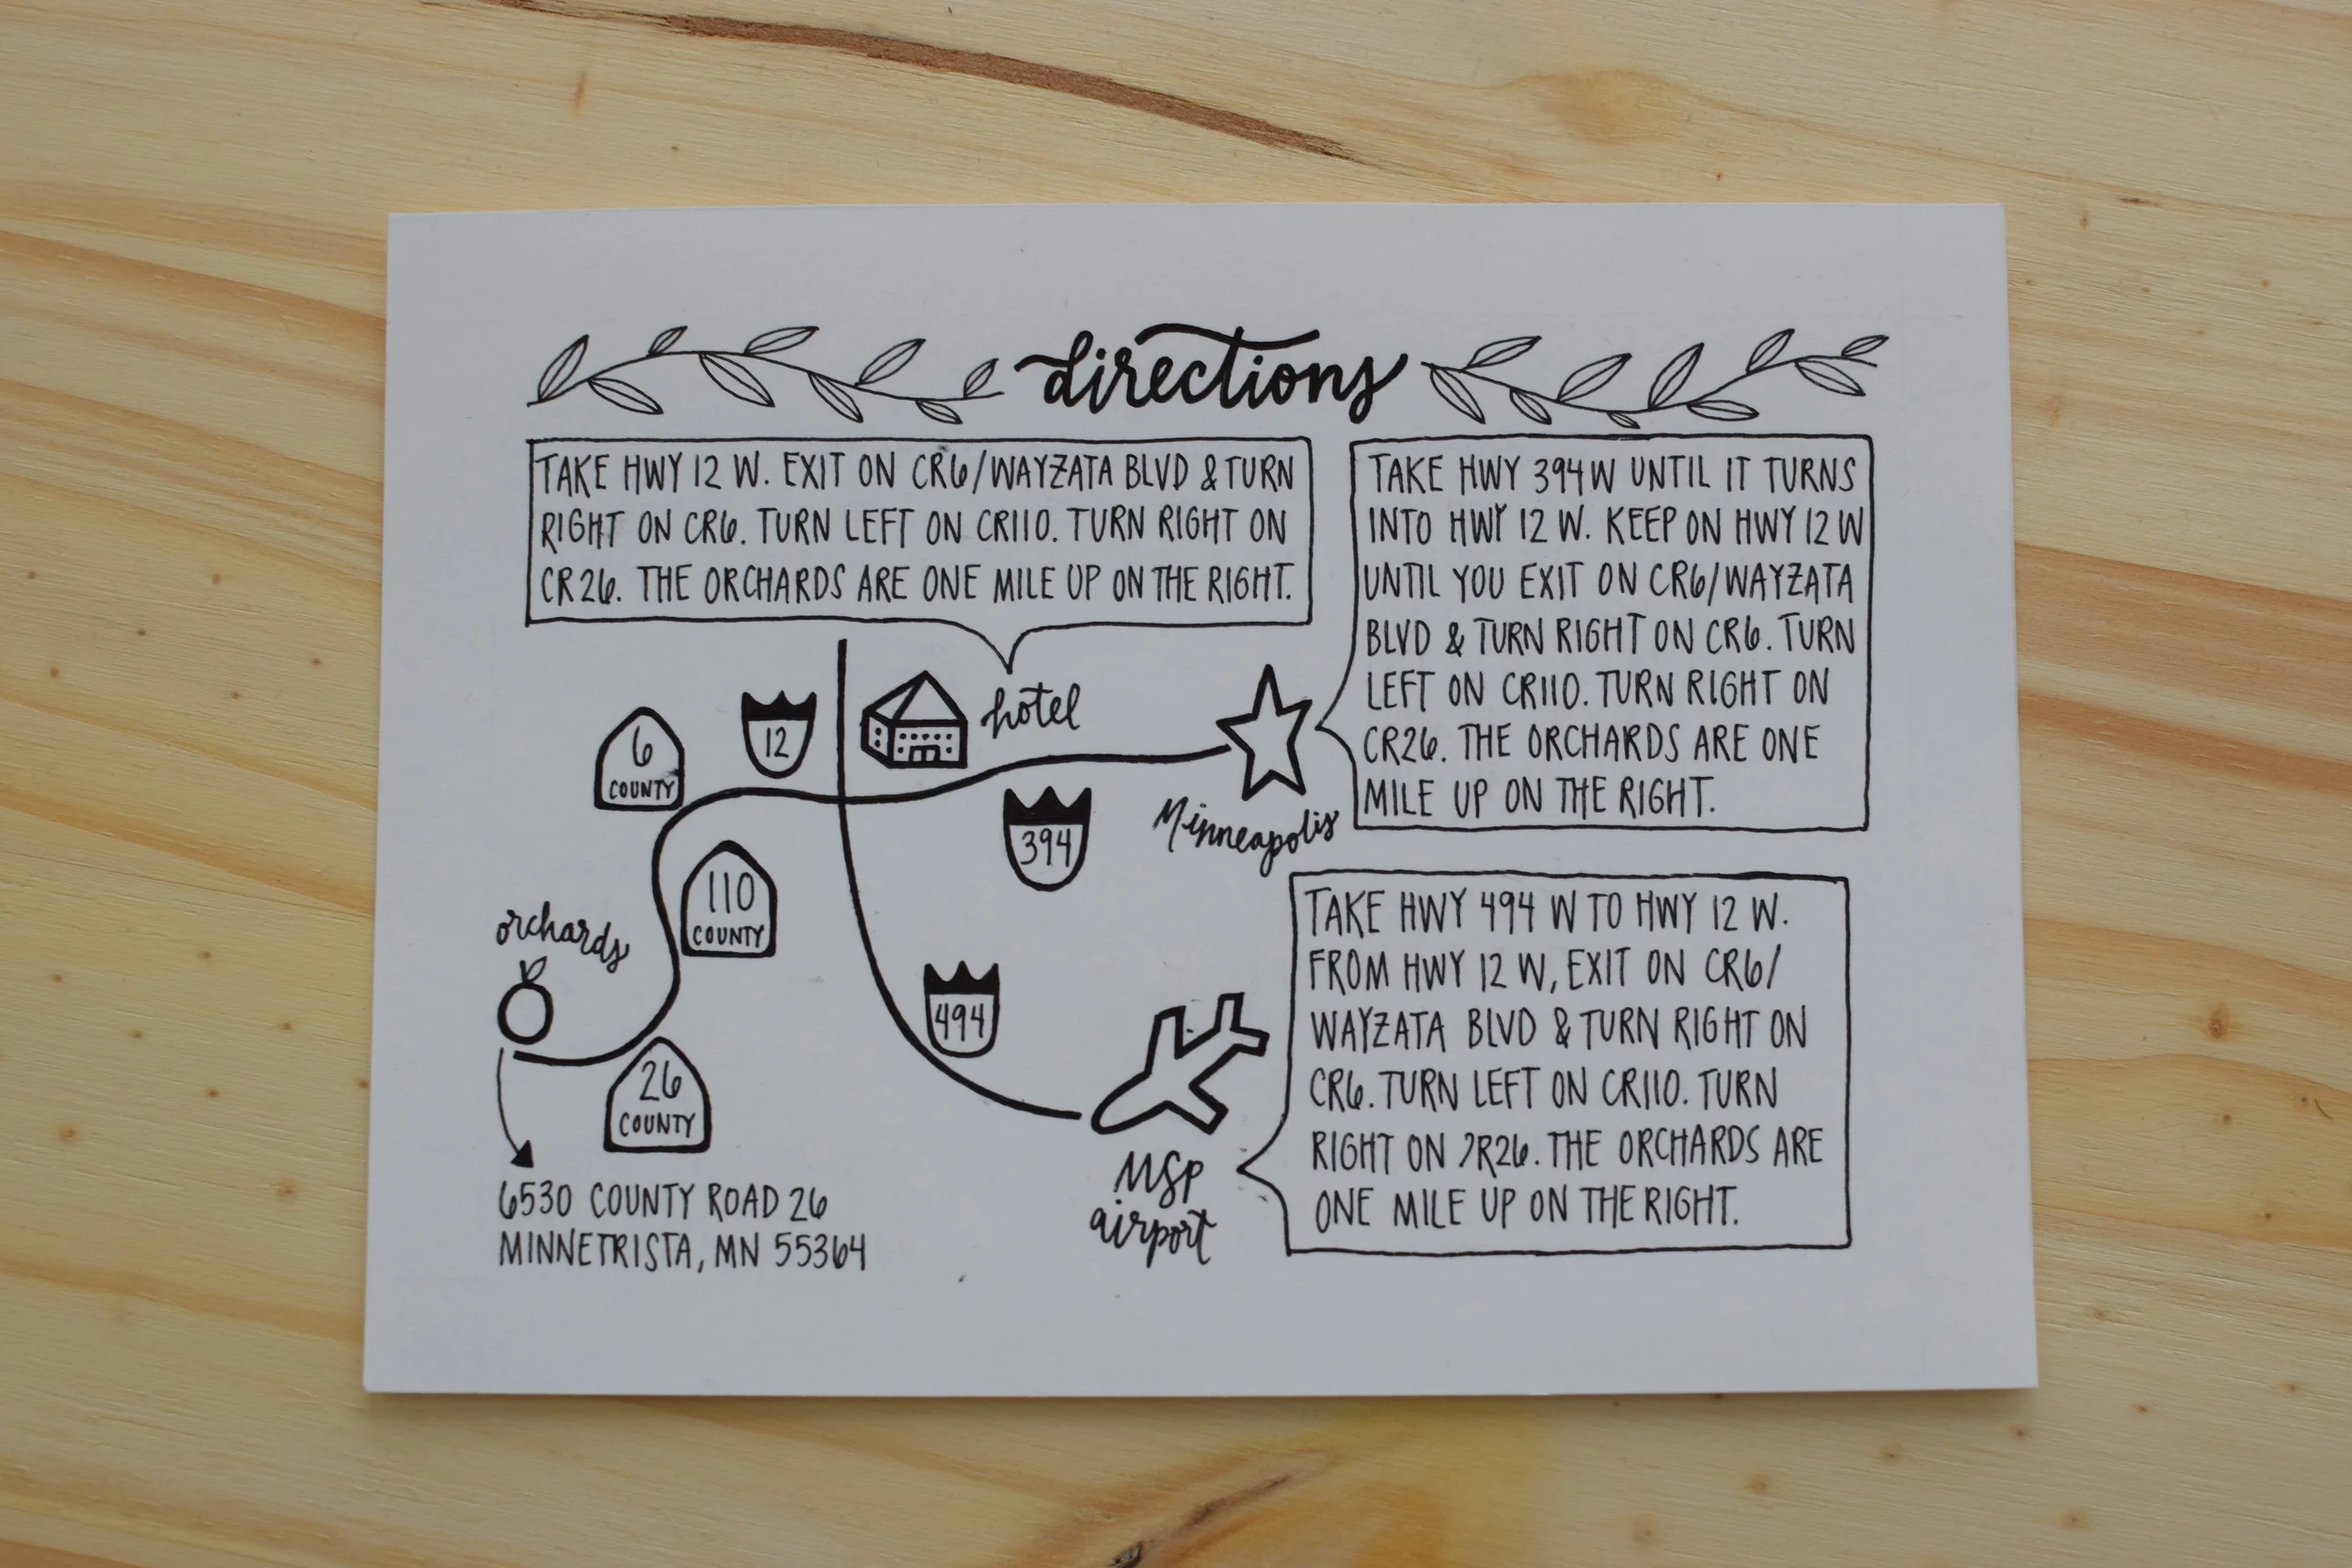 directions
TAKE HWY 12 W. EXIT ON CR6/WAYZATA BLVD & TURN
RIGHT ON CR6. TURN LEFT ON CR110. TURN RIGHT ON
CR26. THE ORCHARDS ARE ONE MILE UP ON THE RIGHT.
TAKE HWY 394 W UNTIL IT TURNS
INTO HWY 12 W. KEEP ON HWY 12 W
UNTIL YOU EXIT ON CR6/WAYZATA
BLVD & TURN RIGHT ON CR6. TURN
LEFT ON CR110. TURN RIGHT ON
CR26. THE ORCHARDS ARE ONE
MILE UP ON THE RIGHT.
hotel
6
COUNTY
12
394
Minneapolis
110
COUNTY
orchards
494
26
COUNTY
MSP
airport
TAKE HWY 494 W TO HWY 12 W.
FROM HWY 12 W, EXIT ON CR6/
WAYZATA BLVD & TURN RIGHT ON
CR6. TURN LEFT ON CR110. TURN
RIGHT ON CR26. THE ORCHARDS ARE
ONE MILE UP ON THE RIGHT.
6530 COUNTY ROAD 26
MINNETRISTA, MN 55364